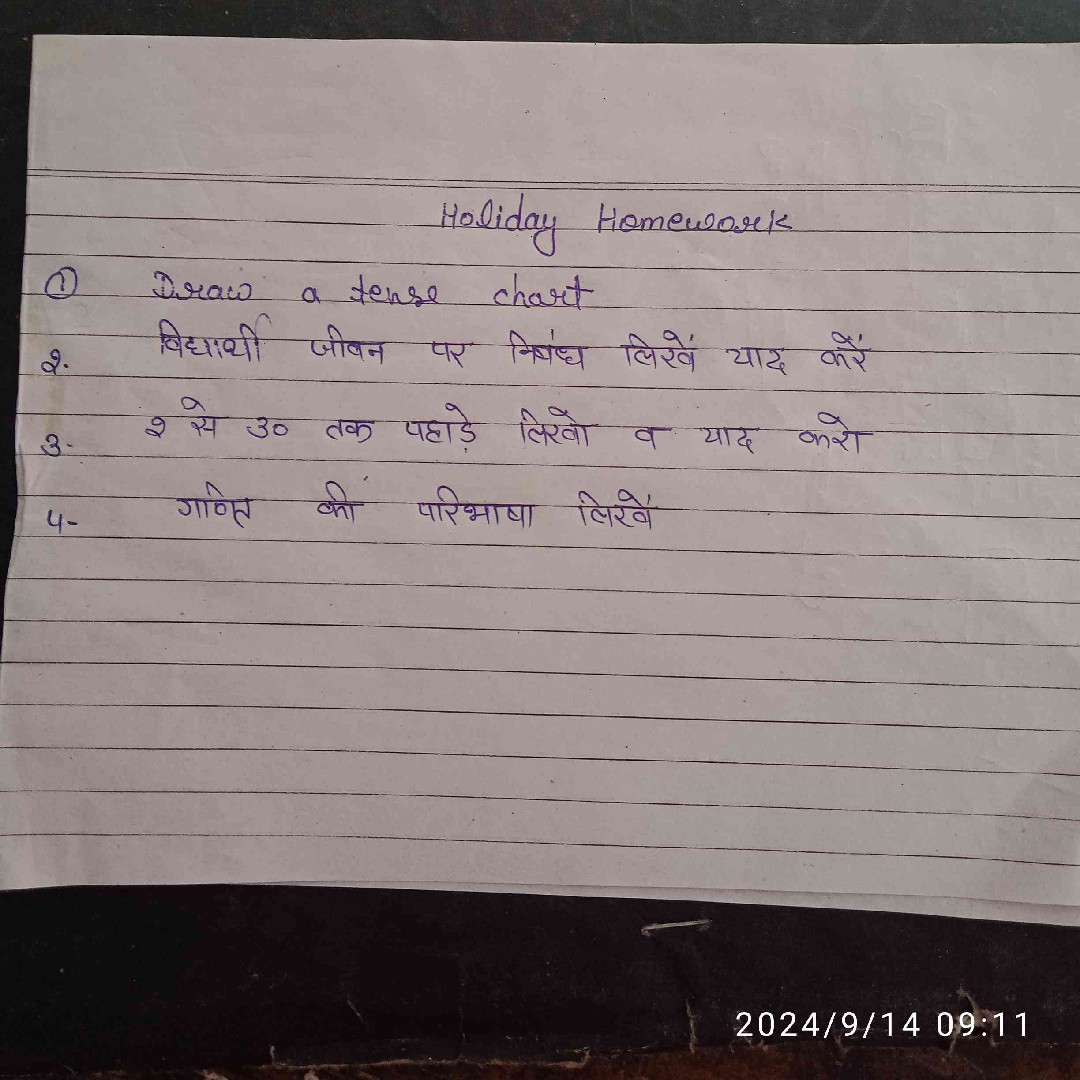 Holiday Homework
① Draw a tense chart
२. विद्यार्थी जीवन पर निबंध लिखें याद करें
३- २ से ३० तक पहाड़े लिखो व याद करो
४- गणित की परिभाषा लिखें
2024/9/14 09:11